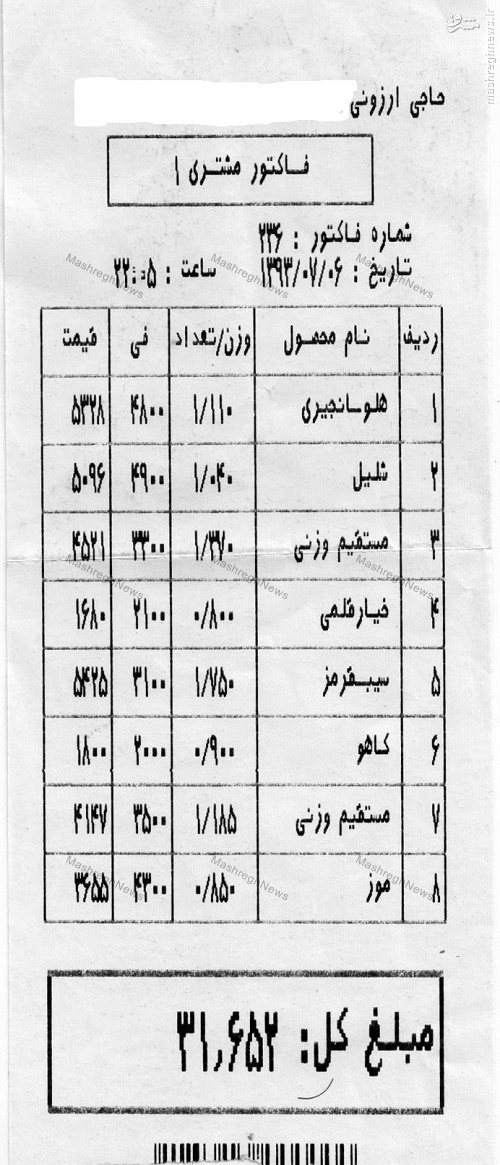 مشرق
mashreghnews.ir
حاجی ارزونی
فاکتور مشتری ۱
شماره فاکتور : ۲۳۶
تاریخ : ۱۳۹۳/۰۷/۰۶ ساعت : ۲۲:۰۵
ردیف نام محصول وزن/تعداد فی قیمت
۱ هلو-انجیری ۱/۱۱۰ ۴۸۰۰ ۵۳۲۸
۲ شلیل ۱/۰۴۰ ۴۹۰۰ ۵۰۹۶
۳ مستقیم وزنی ۱/۳۷۰ ۳۳۰۰ ۴۵۲۱
۴ خیارقلمی ۰/۸۰۰ ۲۱۰۰ ۱۶۸۰
۵ سیب-قرمز ۱/۷۵۰ ۳۱۰۰ ۵۴۲۵
۶ کاهو ۰/۹۰۰ ۲۰۰۰ ۱۸۰۰
۷ مستقیم وزنی ۱/۱۸۵ ۳۵۰۰ ۴۱۴۷
۸ موز ۰/۸۵۰ ۴۳۰۰ ۳۶۵۵
مبلغ کل: ۳۱,۶۵۲
MashreghNews
MashreghNews
MashreghNews
MashreghNews
MashreghNews
MashreghNews
MashreghNews
MashreghNews
MashreghNews